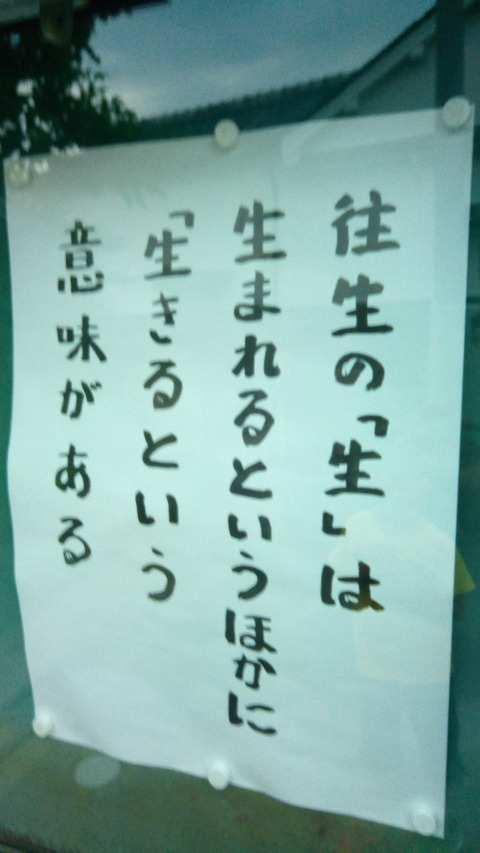 往生の「生」は
生まれるというほかに
「生きるという
意味がある